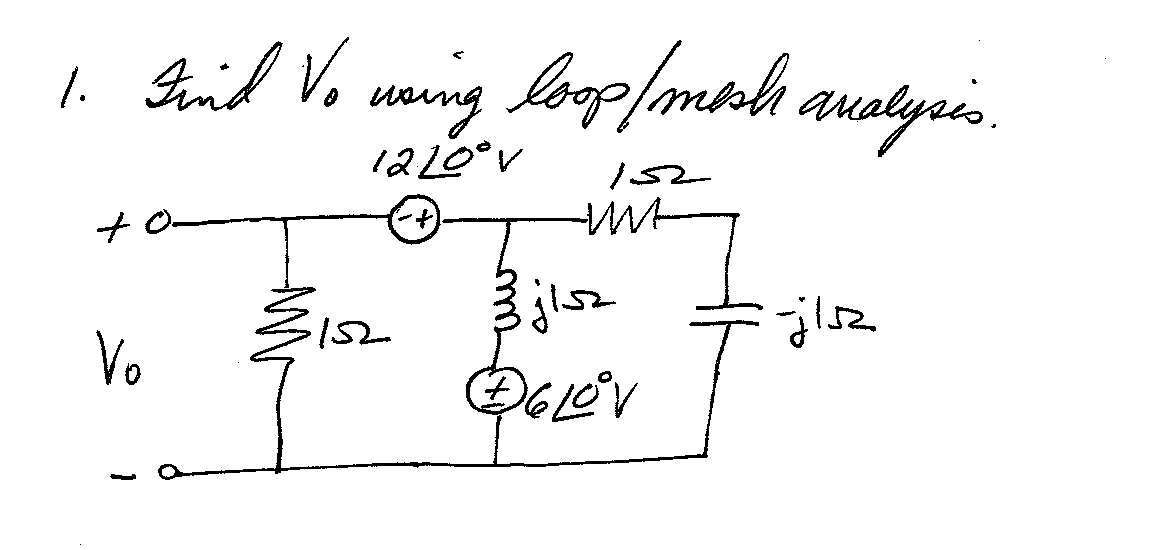 1. Find Vo using loop/mesh analysis.
12∠0°V
1Ω
+
- +
1Ω
j1Ω
-j1Ω
Vo
+
-
6∠0°V
-